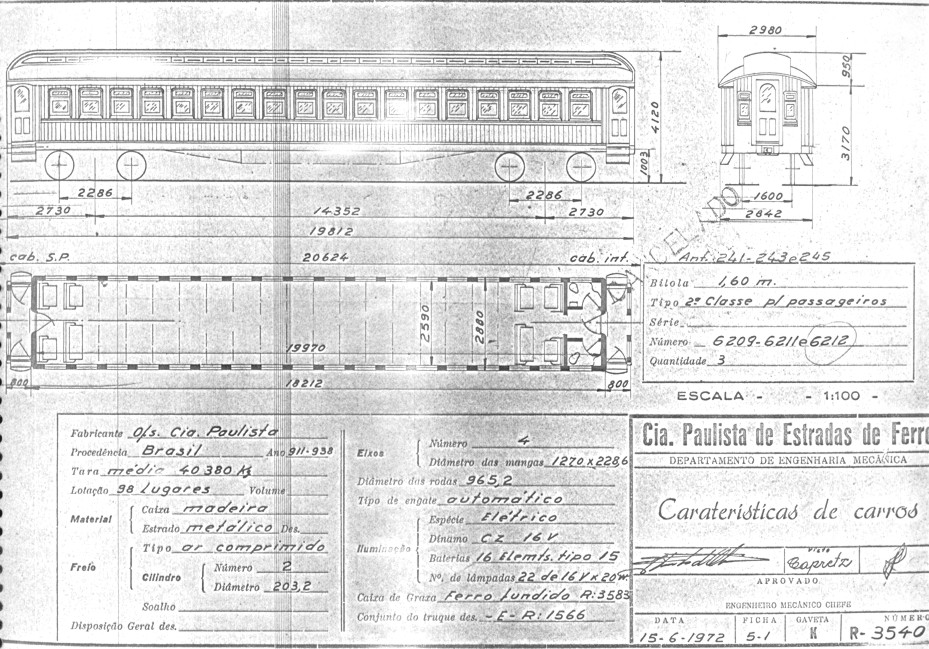 2980
950
4120
3170
1003
2286
2286
2730
14352
2730
19812
1600
2842
cab. S.P.
20624
cab. int.
Ant. 241-243e245
Bitola 1,60 m.
Tipo 2ª Classe p/ passageiros
Série
Número 6209-6211e6212
Quantidade 3
2590
2880
19970
800
18212
800
ESCALA - - 1:100 -
Fabricante Ofs. Cia. Paulista
Procedência Brasil Ano 911-938
Tara média 40380 Kg
Lotação 98 Lugares Volume
Material
Caixa madeira
Estrado metálico Des.
Freio
Tipo ar comprimido
Cilindro
Número 2
Diâmetro 203,2
Soalho
Disposição Geral des.
Eixos
Número 4
Diâmetro das mangas 1270 x 228,6
Diâmetro das rodas 965,2
Tipo de engate automático
Iluminação
Espécie Elétrico
Dínamo CZ 16V
Baterias 16 Elemts. tipo 15
Nº. de lâmpadas 22 de 16V x 20w.
Caixa de Graxa Ferro fundido R:3583
Conjunto do truque des. -E-R:1566
Cia. Paulista de Estradas de Ferro
DEPARTAMENTO DE ENGENHARIA MECÂNICA
Caraterísticas de carros
Visto
Capretz
APROVADO
ENGENHEIRO MECÂNICO CHEFE
DATA
15-6-1972
FICHA
5-1
GAVETA
K
NÚMERO
R-3540